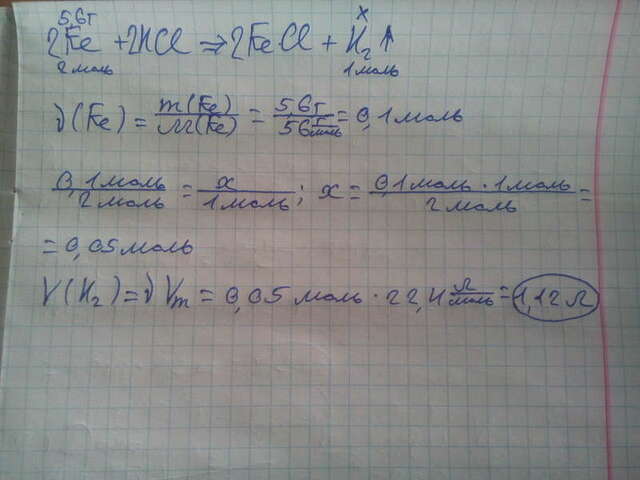 5,6г x
2Fe + 2HCl ⇒ 2FeCl + H₂↑
2 моль 1 моль
ν(Fe) = m(Fe) / M(Fe) = 5,6г / 56 г/моль = 0,1 моль
0,1 моль / 2 моль = x / 1 моль; x = 0,1 моль · 1 моль / 2 моль =
= 0,05 моль
V(H₂) = νVm = 0,05 моль · 22,4 л/моль = 1,12 л